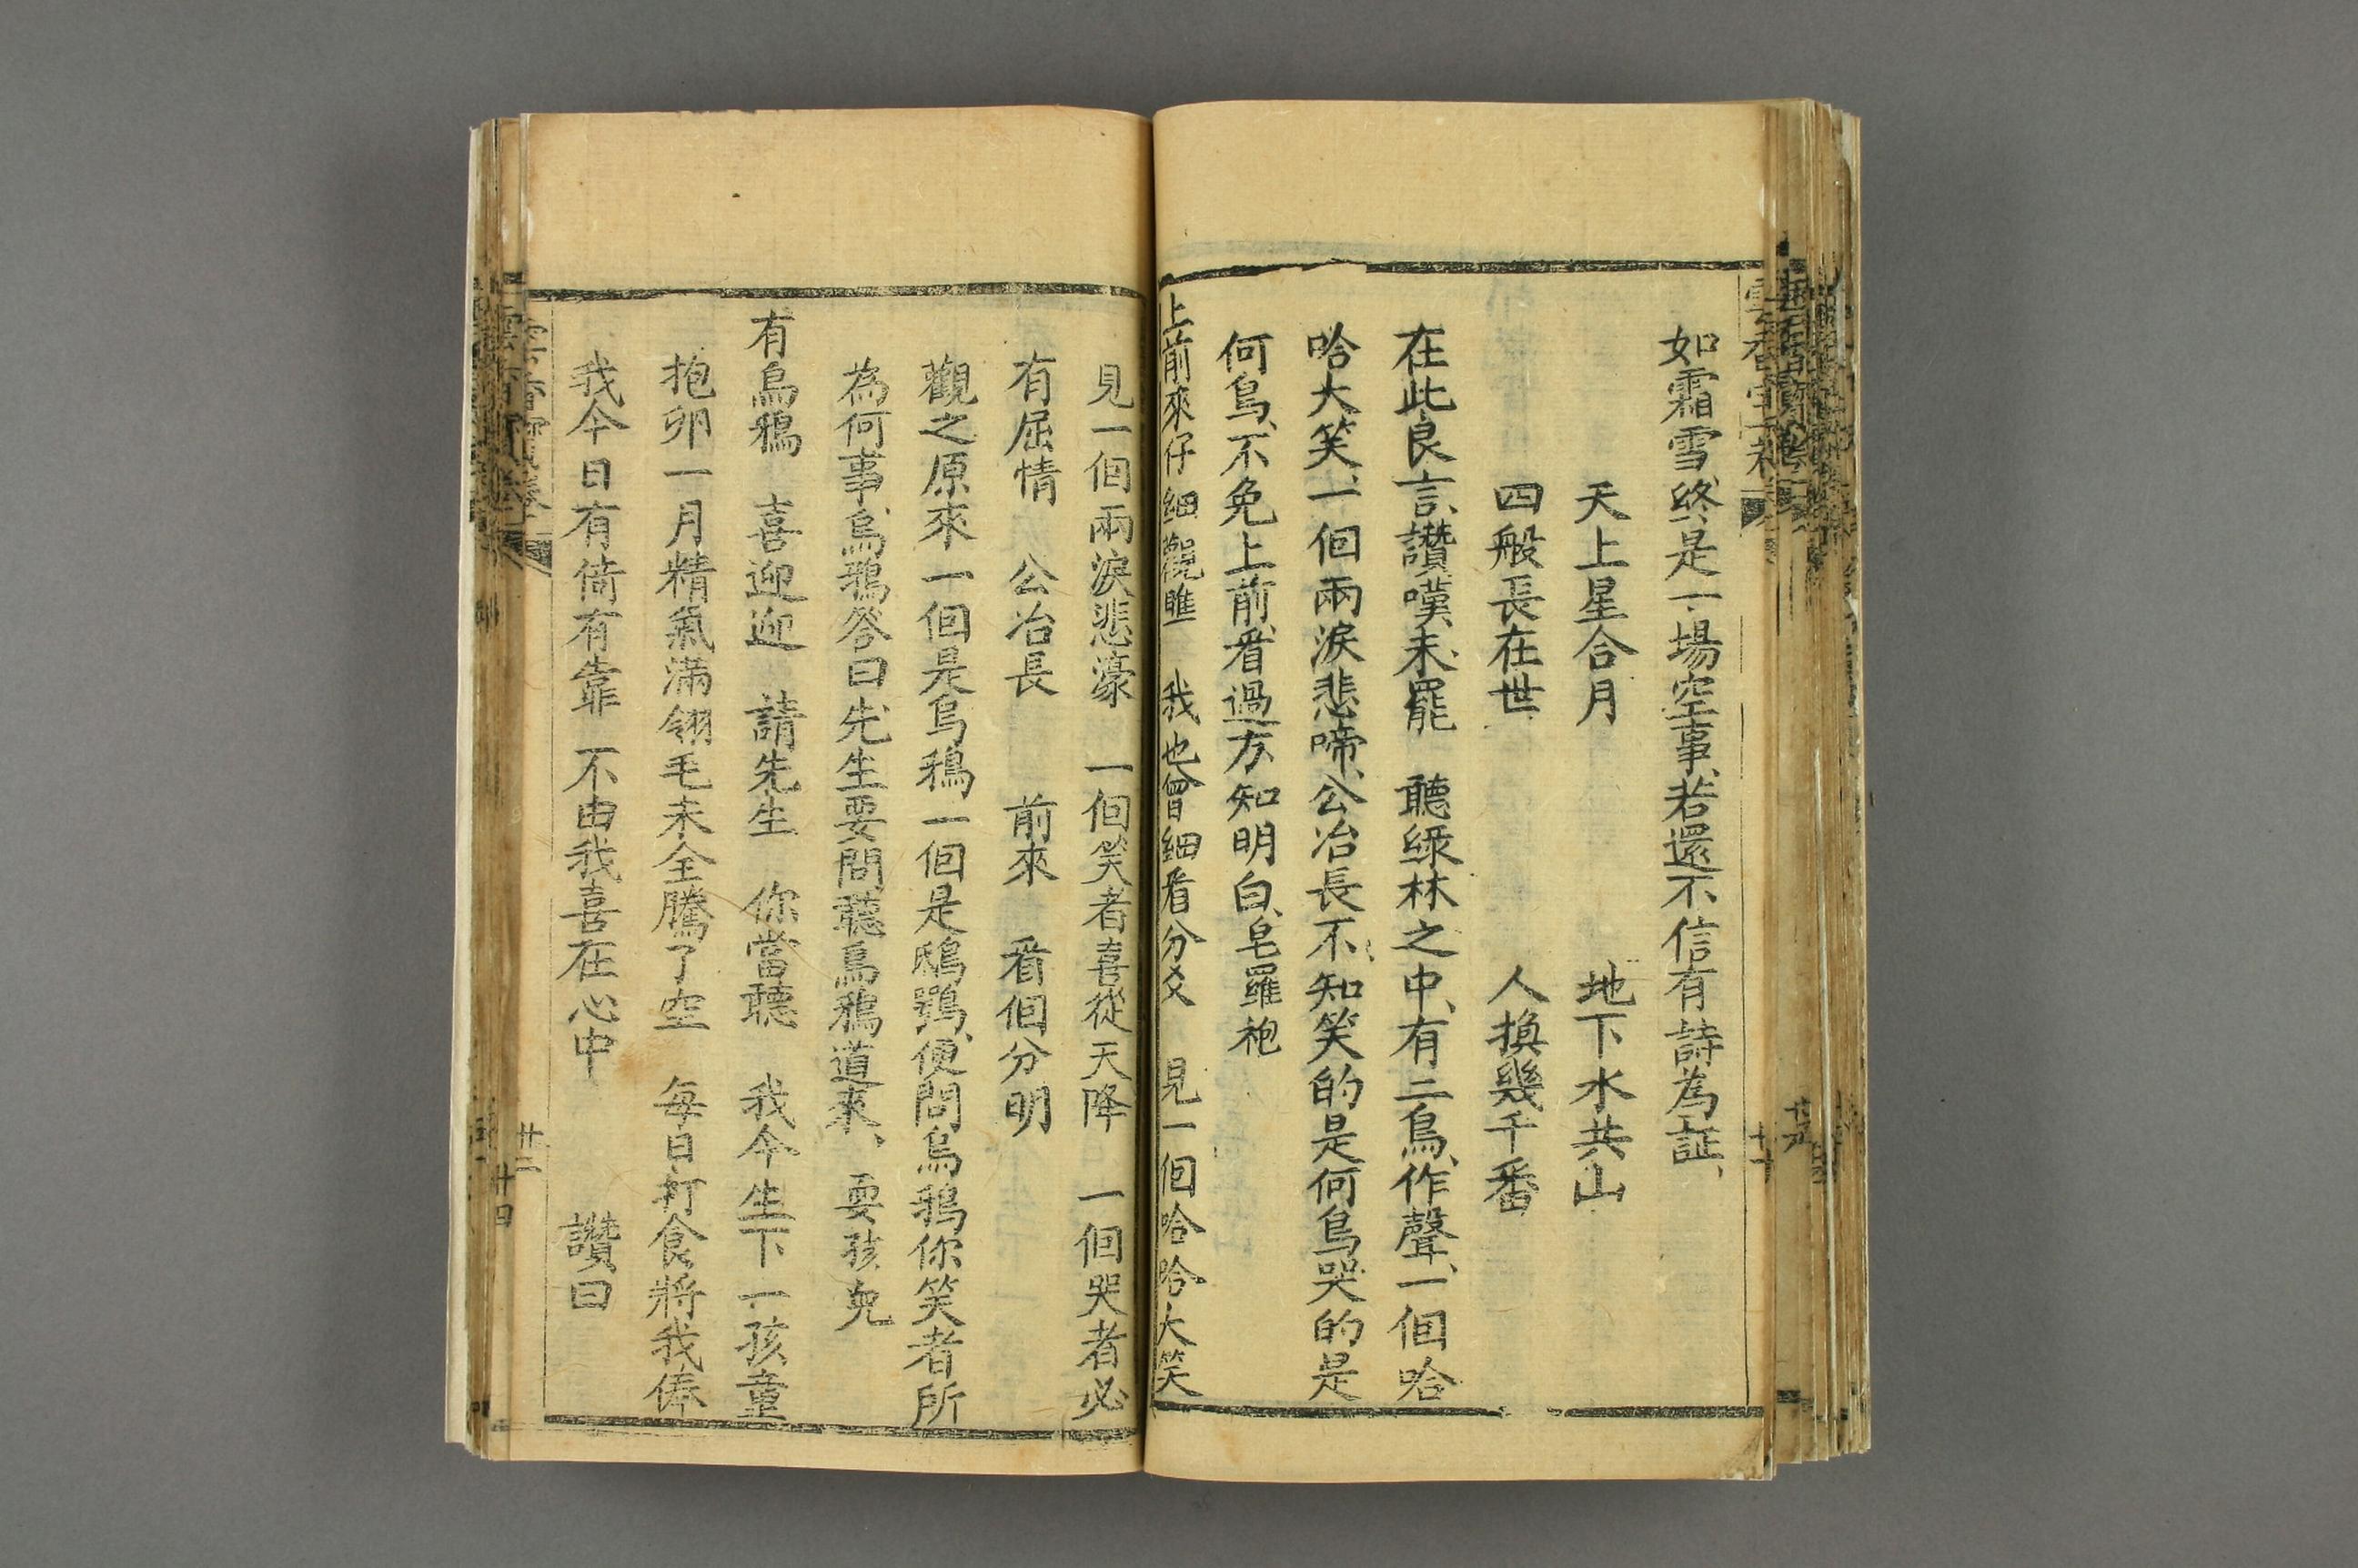 如霜雪、終是一場空事、若還不信有詩為証、
天上星合月　地下水共山
四般長在世　人換幾千番
在此良言、讚嘆未罷　聽綠林之中、有二鳥、作聲、一個哈
哈大笑、一個兩淚悲啼、公冶長不知笑的是何鳥、哭的是
何鳥、不免上前、看過方知明白、皂羅袍
上前來仔細觀瞧　我也曾細看分爻　見一個哈哈大笑
見一個兩淚悲濠　一個笑者喜從天降　一個哭者必
有屈情　公冶長　前來　看個分明
觀之原來一個是烏鴉一個是鴟鴞、便問烏鴉你笑者所
為何事、烏鴉答曰先生要問聽烏鴉道來、耍孩兒
有烏鴉　喜迎迎　請先生　你當聽　我今生下一孩童
抱卵一月精氣滿翎毛未全騰了空　每日打食將我俸
我今日有倚有靠　不由我喜在心中　讚曰